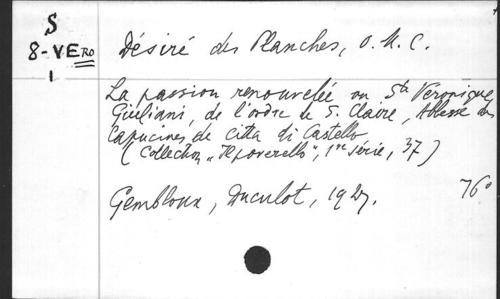 S
8-VERO
1
Désiré des Planches, O. M. C.
La passion renouvelée ou Ste Veronique
Giuliani, de l'ordre de S. Claire, Abbesse des
Capucines de citta di Castello
(Collection "Il poverello", 1re série, 37)
Gembloux, Duculot, 1927.
76°